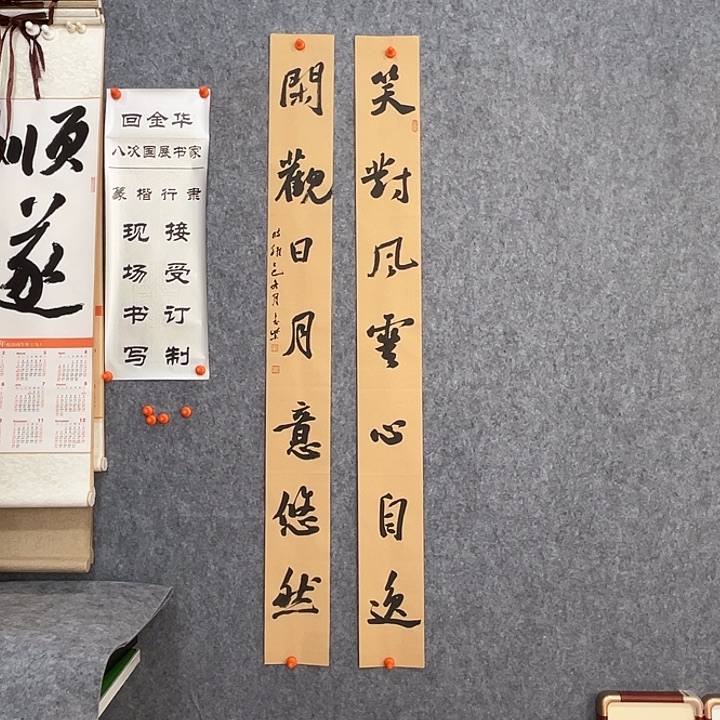 笑對風雲心自逸
閑觀日月意悠然
回金华
八次国展书家
篆楷行隶
接受订制
现场书写
顺
遂